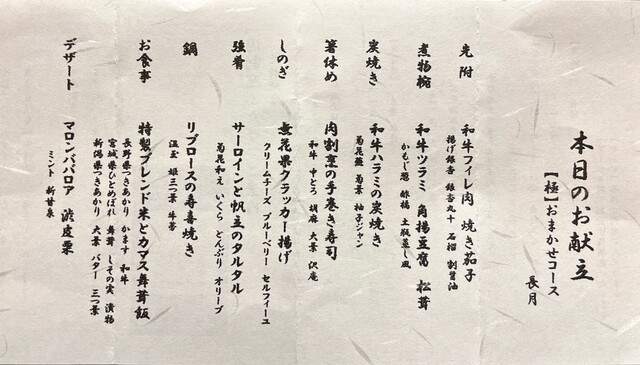 本日のお献立
【極】おまかせコース
長月
先附
和牛フィレ肉 焼き茄子
揚げ銀杏 銀杏丸十 石榴 割醤油
煮物椀
和牛ツラミ 角揚豆腐 松茸
かもじ葱 酢橘 土瓶蒸し風
炭焼き
和牛ハラミの炭焼き
菊花蕪 菊菜 柚子ジャン
箸休め
肉割烹の手巻き寿司
和牛 中とろ 胡麻 大葉 沢庵
しのぎ
無花果クラッカー揚げ
クリームチーズ ブルーベリー セルフィーユ
強肴
サーロインと帆立のタルタル
菊花和え いくら とんぶり オリーブ
鍋
リブロースの寿喜焼き
温玉 姫三つ葉 牛蒡
お食事
特製ブレンド米とカマス舞茸飯
長野県つきあかり かます 和牛
宮城県ひとめぼれ 舞茸 しその実 漬物
新潟県つきあかり 大葉 バター 三つ葉
デザート
マロンババロア 渋皮栗
ミント 新甘泉